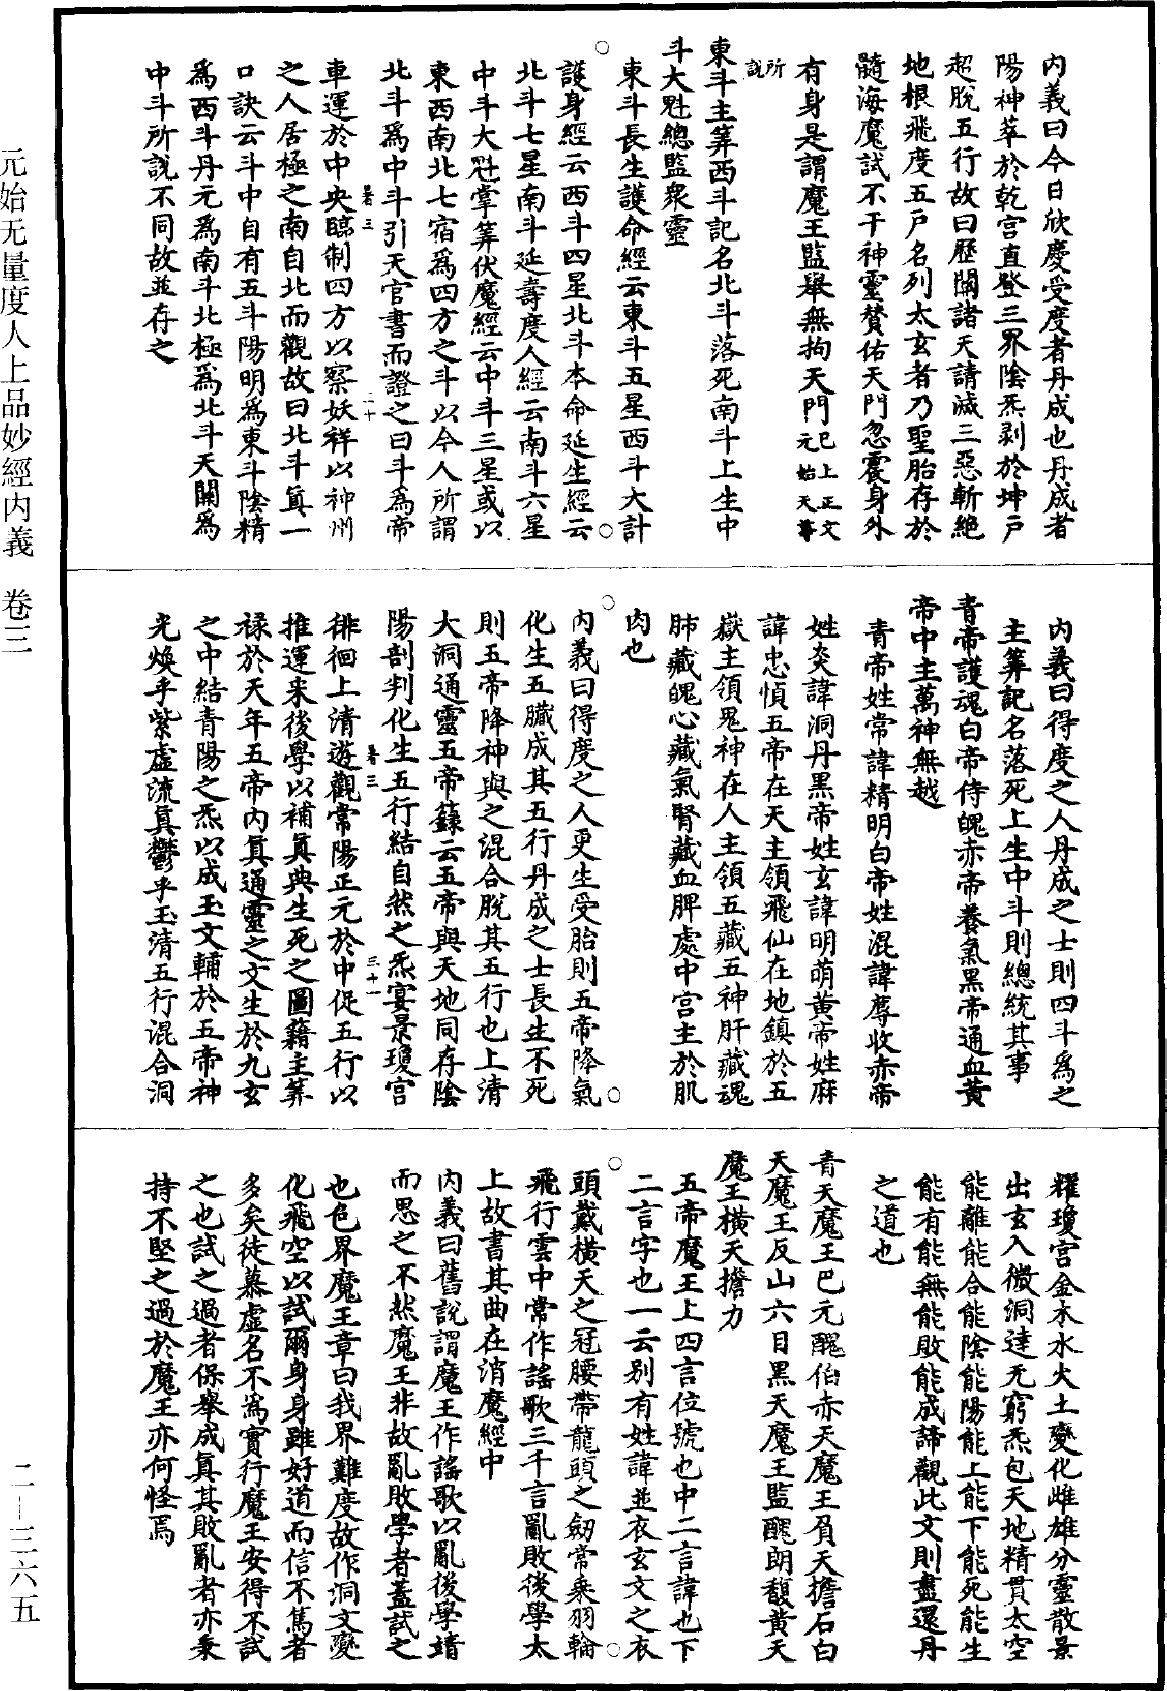 內義曰今日欣慶受度者丹成也丹成者
陽神萃於乾宮直登三界陰炁剥於坤戶
超脫五行故曰歷關諸天請滅三惡斬絕
地根飛度五戶名列太玄者乃聖胎存於
髓海魔試不干神靈贊佑天門忽震身外
有身是謂魔王監舉無拘天門已上正文元始天尊
所說
東斗主筭西斗記名北斗落死南斗上生中
斗大魁總監衆靈
東斗長生護命經云東斗五星西斗大計
護身經云西斗四星北斗本命延生經云
北斗七星南斗延壽度人經云南斗六星
中斗大魁掌筭伏魔經云中斗三星或以
東西南北七宿爲四方之斗以今人所謂
北斗爲中斗引天官書而證之曰斗爲帝
卷三
二十
車運於中央臨制四方以察妖祥以神州
之人居極之南自北而觀故曰北斗真一
口訣云斗中自有五斗陽明爲東斗陰精
爲西斗丹元爲南斗北極爲北斗天關爲
中斗所說不同故並存之
內義曰得度之人丹成之士則四斗爲之
主筭記名落死上生中斗則總統其事
青帝護魂白帝侍魄赤帝養氣黑帝通血黃
帝中主萬神無越
青帝姓常諱精明白帝姓混諱蓐收赤帝
姓炎諱洞丹黑帝姓玄諱明萌黃帝姓麻
諱忠慎五帝在天主領飛仙在地鎮於五
嶽主領鬼神在人主領五藏五神肝藏魂
肺藏魄心藏氣腎藏血脾處中宮主於肌
肉也
內義曰得度之人更生受胎則五帝降氣
化生五臟成其五行丹成之士長生不死
則五帝降神與之混合脫其五行也上清
大洞通靈五帝籙云五帝與天地同存陰
陽剖判化生五行結自然之炁宴景瓊宮
卷三
三十一
徘徊上清遊觀常陽正元於中促五行以
推運来後學以補真典生死之圖籍主筭
祿於天年五帝內真通靈之文生於九玄
之中結青陽之炁以成玉文輔於五帝神
光煥乎紫虛流真鬱乎玉清五行混合洞
耀瓊宮金木水火土變化雌雄分靈散景
出玄入微洞達无窮炁包天地精貫太空
能離能合能陰能陽能上能下能死能生
能有能無能敗能成諦觀此文則盡還丹
之道也
青天魔王巴元醜伯赤天魔王負天擔石白
天魔王反山六目黑天魔王監醜朗馥黃天
魔王橫天擔力
五帝魔王上四言位號也中二言諱也下
二言字也一云别有姓諱並衣玄文之衣
頭戴橫天之冠腰帶龍頭之劒常乘羽輪
飛行雲中常作謠歌三千言亂敗後學太
上故書其曲在消魔經中
內義曰舊說謂魔王作謠歌以亂後學靖
而思之不然魔王非故亂敗學者蓋試之
也色界魔王章曰我界難度故作洞文變
化飛空以試爾身身雖好道而信不篤者
多矣徒慕虛名不爲實行魔王安得不試
之也試之過者保舉成真其敗亂者亦秉
持不堅之過於魔王亦何怪焉
元始无量度人上品妙經內義　卷三
二—三六五